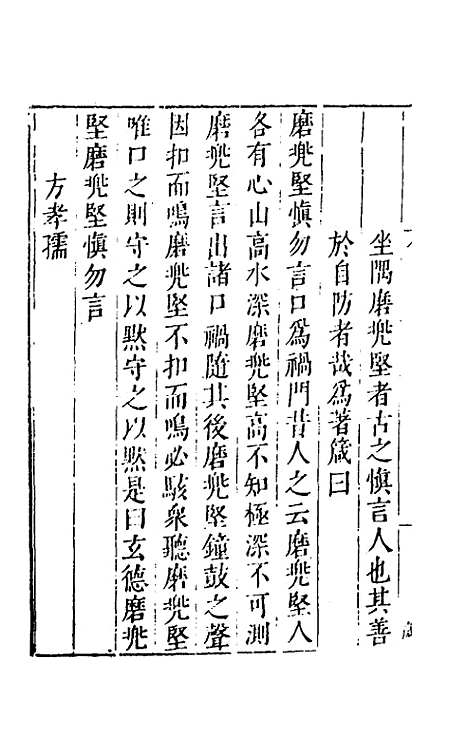 坐隅磨兠堅者古之慎言人也其善
於自防者哉爲著箴曰
磨兠堅慎勿言口爲禍門昔人之云磨兠堅人
各有心山高水深磨兠堅高不知極深不可測
磨兠堅言出諸口禍隨其後磨兠堅鐘鼓之聲
因扣而鳴磨兠堅不扣而鳴必駭衆聽磨兠堅
唯口之則守之以黙守之以黙是曰玄德磨兠
堅磨兠堅慎勿言
方孝孺